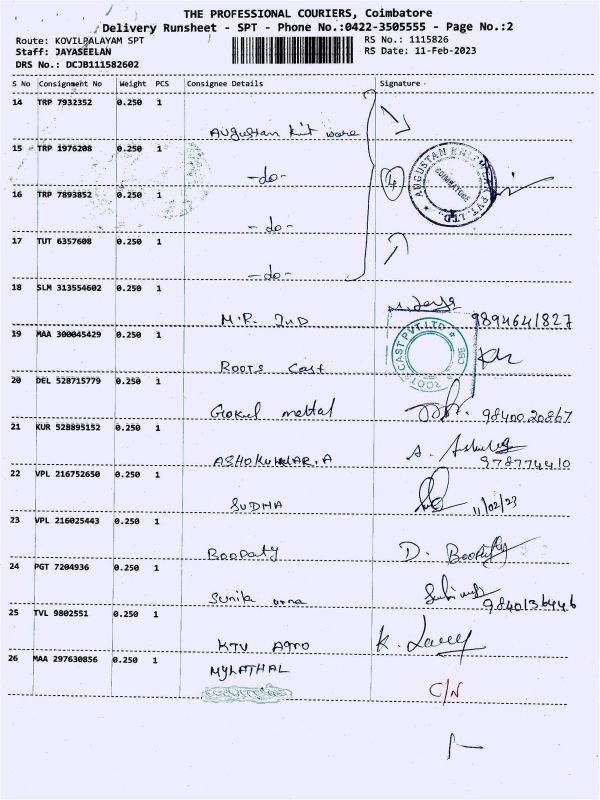 THE PROFESSIONAL COURIERS, Coimbatore
Delivery Runsheet - SPT - Phone No.:0422-3505555 - Page No.:2
Route: KOVILPALAYAM SPT
RS No.: 1115826
Staff: JAYASEELAN
RS Date: 11-Feb-2023
DRS No.: DCJB111582602
S No Consignment No Weight PCS Consignee Details Signature
14 TRP 7932352 0.250 1
Augustan knit ware
15 TRP 1976208 0.250 1
-do-
4
AUGUSTAN KNITWEAR PVT. LTD.
COIMBATORE
16 TRP 7893852 0.250 1
-do-
17 TUT 6357608 0.250 1
-do-
18 SLM 313554602 0.250 1
M.R. IND
9894641827
19 MAA 300045429 0.250 1
Roots Cast
ROOTS CAST PVT.LTD CBE
20 DEL 528715779 0.250 1
Gokul mettal
98400 20867
21 KUR 528895152 0.250 1
ASHOKUMAR.A
978774410
22 VPL 216752650 0.250 1
SUDHA
11/02/23
23 VPL 216025443 0.250 1
Boopaty
D. Boopaty
24 PGT 7204936 0.250 1
9840136446
25 TVL 9802551 0.250 1
KTV Agro
26 MAA 297630856 0.250 1
MYLATHAL
C/N